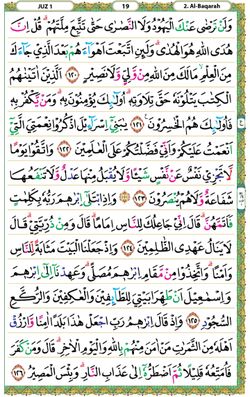 JUZ 1 19 2. Al-Baqarah
وَلَنْ تَرْضٰى عَنْكَ الْيَهُوْدُ وَلَا النَّصٰرٰى حَتّٰى تَتَّبِعَ مِلَّتَهُمْ ۗ قُلْ اِنَّ
هُدَى اللّٰهِ هُوَ الْهُدٰى ۗ وَلَىِٕنِ اتَّبَعْتَ اَهْوَاۤءَهُمْ بَعْدَ الَّذِيْ جَاۤءَكَ
مِنَ الْعِلْمِ ۙ مَا لَكَ مِنَ اللّٰهِ مِنْ وَّلِيٍّ وَّلَا نَصِيْرٍ ﴿١٢٠﴾ اَلَّذِيْنَ اٰتَيْنٰهُمُ
الْكِتٰبَ يَتْلُوْنَهٗ حَقَّ تِلَاوَتِهٖ ۗ اُولٰۤىِٕكَ يُؤْمِنُوْنَ بِهٖ ۗ وَمَنْ يَّكْفُرْ بِهٖ
فَاُولٰۤىِٕكَ هُمُ الْخٰسِرُوْنَ ﴿١٢١﴾ يٰبَنِيْٓ اِسْرَاۤءِيْلَ اذْكُرُوْا نِعْمَتِيَ الَّتِيْٓ
اَنْعَمْتُ عَلَيْكُمْ وَاَنِّيْ فَضَّلْتُكُمْ عَلَى الْعٰلَمِيْنَ ﴿١٢٢﴾ وَاتَّقُوْا يَوْمًا
لَّا تَجْزِيْ نَفْسٌ عَنْ نَّفْسٍ شَيْـًٔا وَّلَا يُقْبَلُ مِنْهَا عَدْلٌ وَّلَا تَنْفَعُهَا
شَفَاعَةٌ وَّلَا هُمْ يُنْصَرُوْنَ ﴿١٢٣﴾ وَاِذِ ابْتَلٰٓى اِبْرٰهٖمَ رَبُّهٗ بِكَلِمٰتٍ
فَاَتَمَّهُنَّ ۗ قَالَ اِنِّيْ جَاعِلُكَ لِلنَّاسِ اِمَامًا ۗ قَالَ وَمِنْ ذُرِّيَّتِيْ ۗ قَالَ
لَا يَنَالُ عَهْدِى الظّٰلِمِيْنَ ﴿١٢٤﴾ وَاِذْ جَعَلْنَا الْبَيْتَ مَثَابَةً لِّلنَّاسِ
وَاَمْنًا ۗ وَاتَّخِذُوْا مِنْ مَّقَامِ اِبْرٰهٖمَ مُصَلًّى ۗ وَعَهِدْنَآ اِلٰٓى اِبْرٰهٖمَ
وَاِسْمٰعِيْلَ اَنْ طَهِّرَا بَيْتِيَ لِلطَّاۤىِٕفِيْنَ وَالْعٰكِفِيْنَ وَالرُّكَّعِ
السُّجُوْدِ ﴿١٢٥﴾ وَاِذْ قَالَ اِبْرٰهٖمُ رَبِّ اجْعَلْ هٰذَا بَلَدًا اٰمِنًا وَّارْزُقْ
اَهْلَهٗ مِنَ الثَّمَرٰتِ مَنْ اٰمَنَ مِنْهُمْ بِاللّٰهِ وَالْيَوْمِ الْاٰخِرِ ۗ قَالَ وَمَنْ كَفَرَ
فَاُمَتِّعُهٗ قَلِيْلًا ثُمَّ اَضْطَرُّهٗٓ اِلٰى عَذَابِ النَّارِ ۗ وَبِئْسَ الْمَصِيْرُ ﴿١٢٦﴾